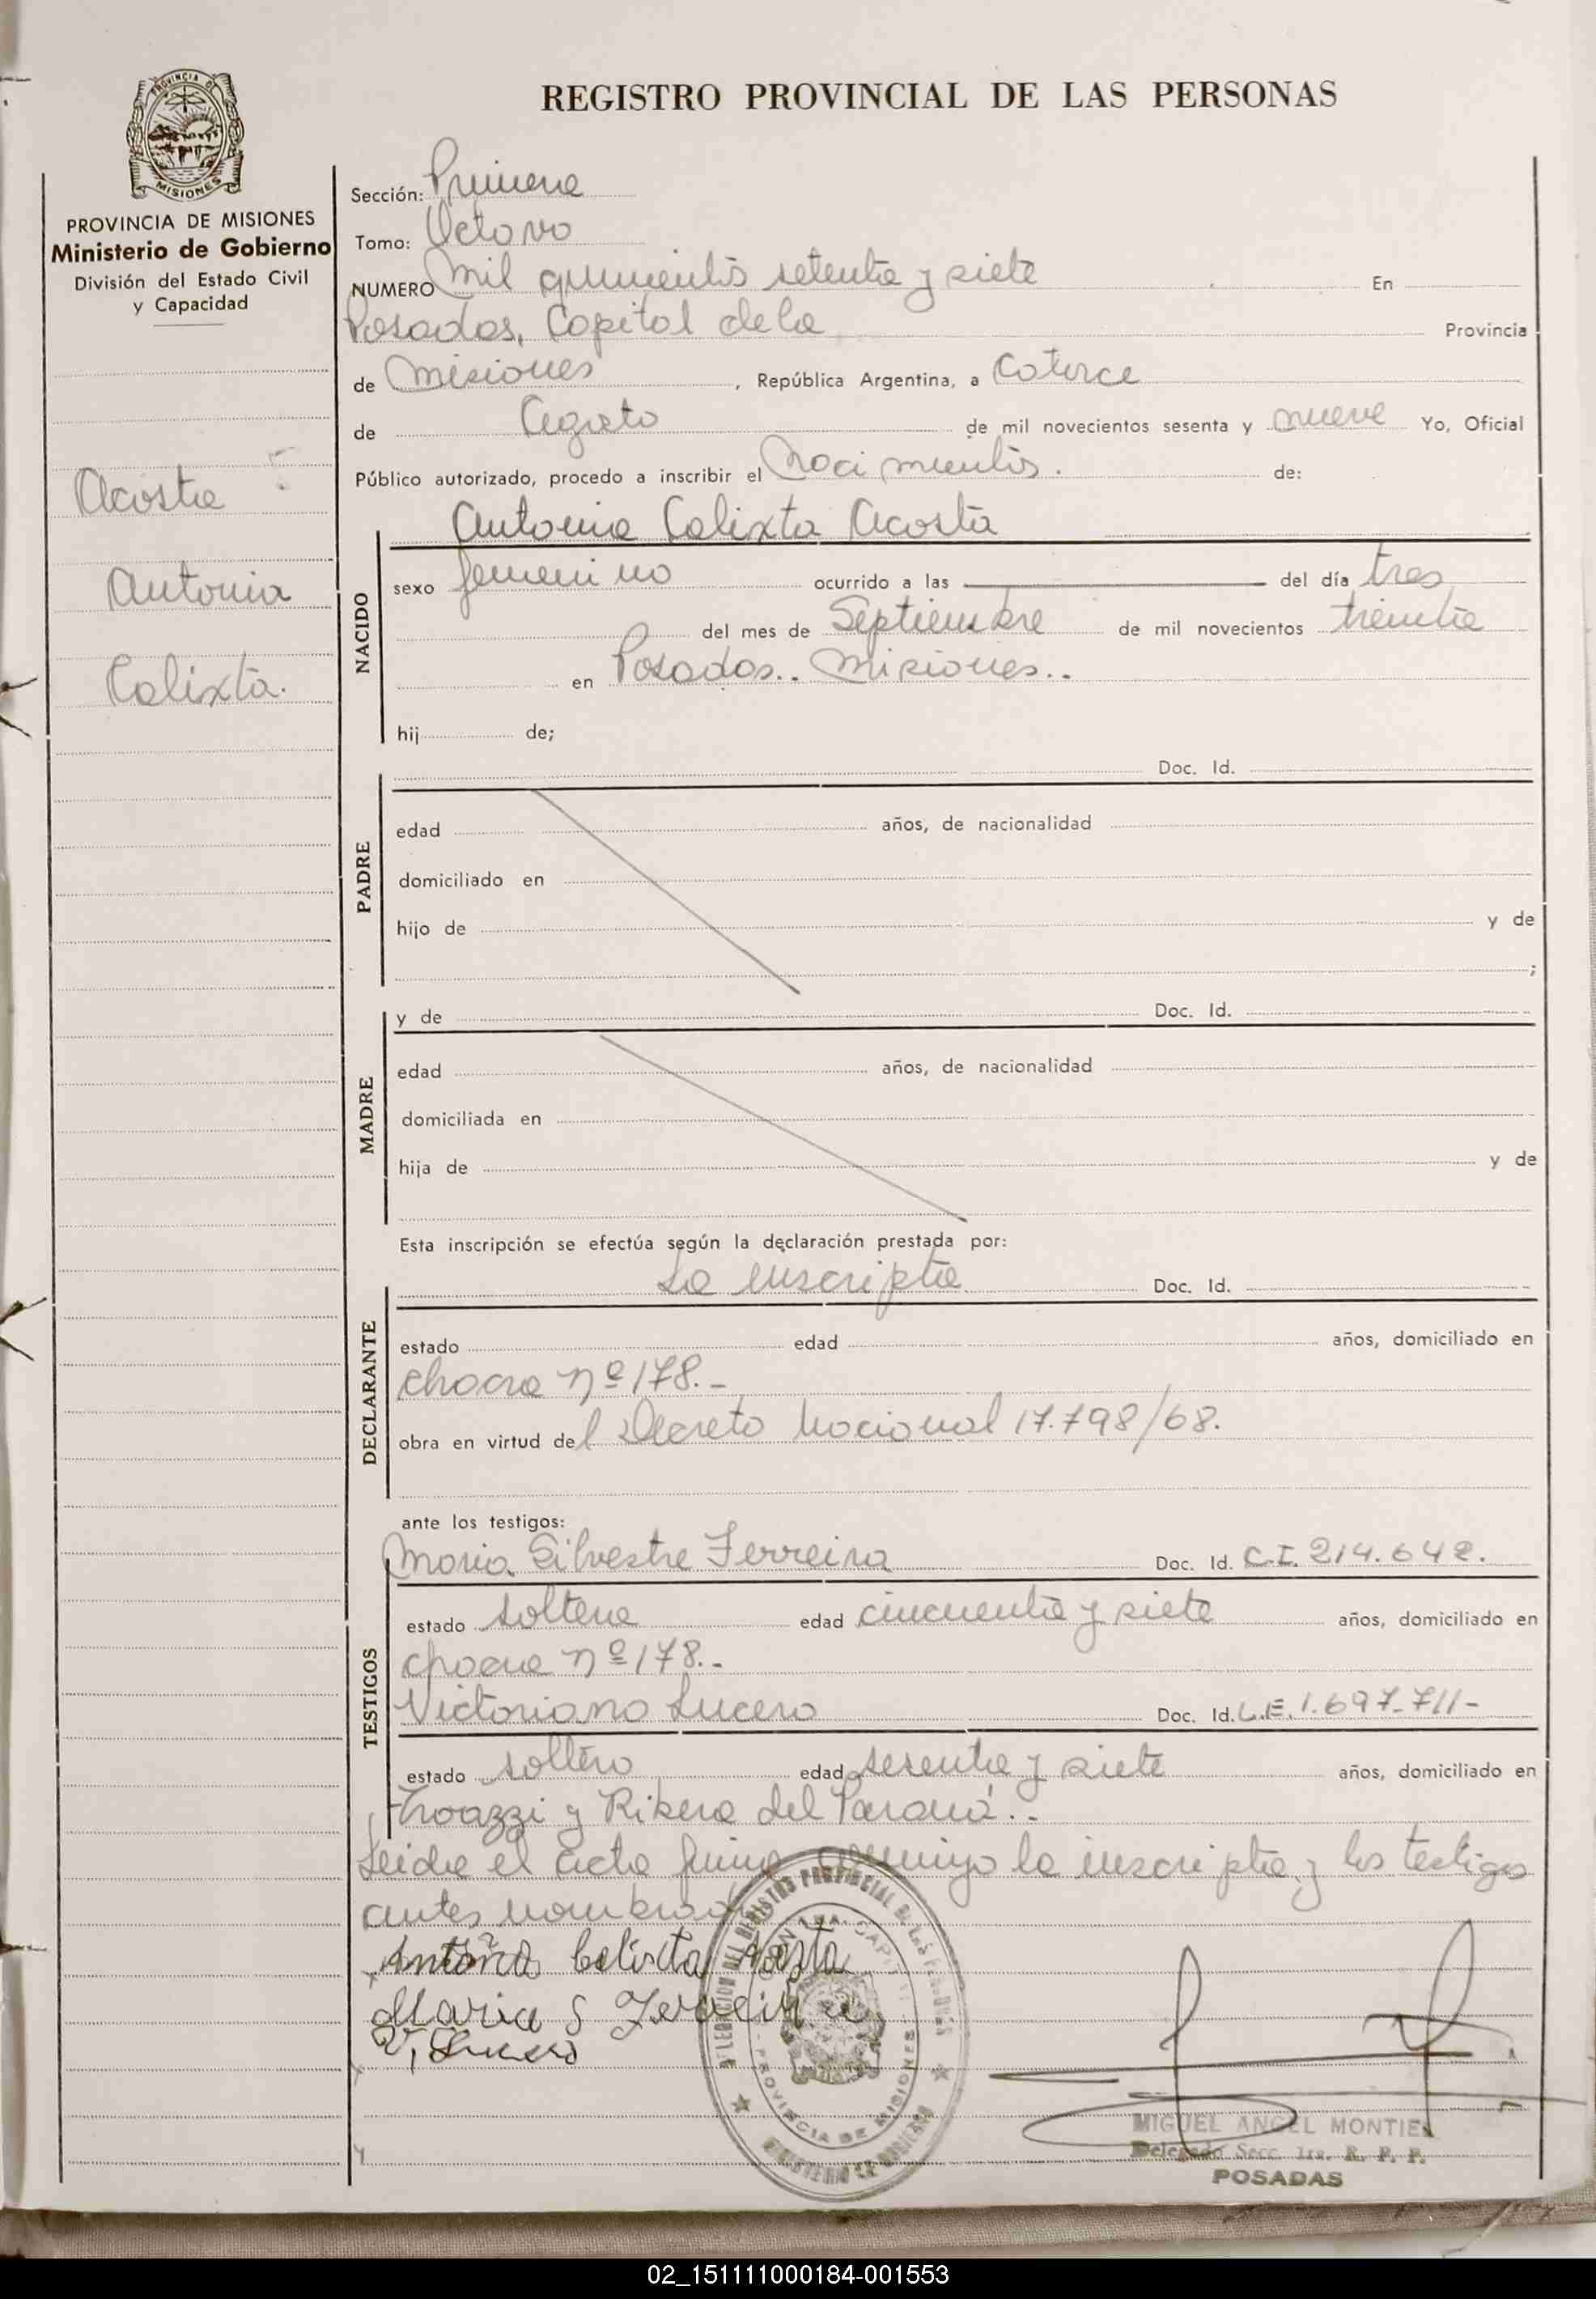 REGISTRO PROVINCIAL DE LAS PERSONAS
PROVINCIA DE
MISIONES
PROVINCIA DE MISIONES
Ministerio de Gobierno
División del Estado Civil
y Capacidad
Acosta
Antonia
Calixta.
Sección: Primera
Tomo: Octavo
NUMERO Mil quinientos setenta y siete En
Posadas, Capital de la Provincia
de Misiones, República Argentina, a Catorce
de Agosto de mil novecientos sesenta y nueve Yo, Oficial
Público autorizado, procedo a inscribir el Nacimiento. de:
Antonia Calixta Acosta
NACIDO
sexo femenino ocurrido a las del día tres
del mes de Septiembre de mil novecientos treinta
en Posadas.. Misiones..
hij de;
Doc. Id.
PADRE
edad años, de nacionalidad
domiciliado en
hijo de y de
;
MADRE
y de Doc. Id.
edad años, de nacionalidad
domiciliada en
hija de y de
Esta inscripción se efectúa según la declaración prestada por:
La inscripta Doc. Id.
DECLARANTE
estado edad años, domiciliado en
chacra nº 178.-
obra en virtud del Decreto Nacional 17.798/68.
ante los testigos:
Maria Silvestre Ferreira Doc. Id. C.I. 214.642.
TESTIGOS
estado soltera edad cincuenta y siete años, domiciliado en
chacra nº 178.-
Victoriano Lucero Doc. Id. L.E. 1.697.711-
estado soltero edad sesenta y siete años, domiciliado en
y Ribera del Paraná..
Leida el acta firma conmigo la inscripta y los testigos
antes nombrados
Antonia Calixta Acosta
Maria S Ferreira
V. Lucero
DELEGACION DEL REGISTRO PROVINCIAL DE LAS PERSONAS
PROVINCIA DE MISIONES
MINISTERIO DE GOBIERNO
MIGUEL ANGEL MONTIEL
Delegado Secc. 1ra. R. P. P.
POSADAS
02_151111000184-001553